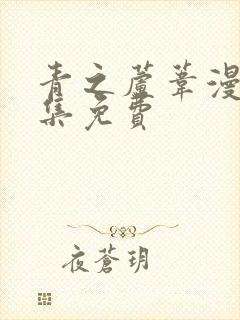 青之蘆葦漫
集免費
夜蒼玥